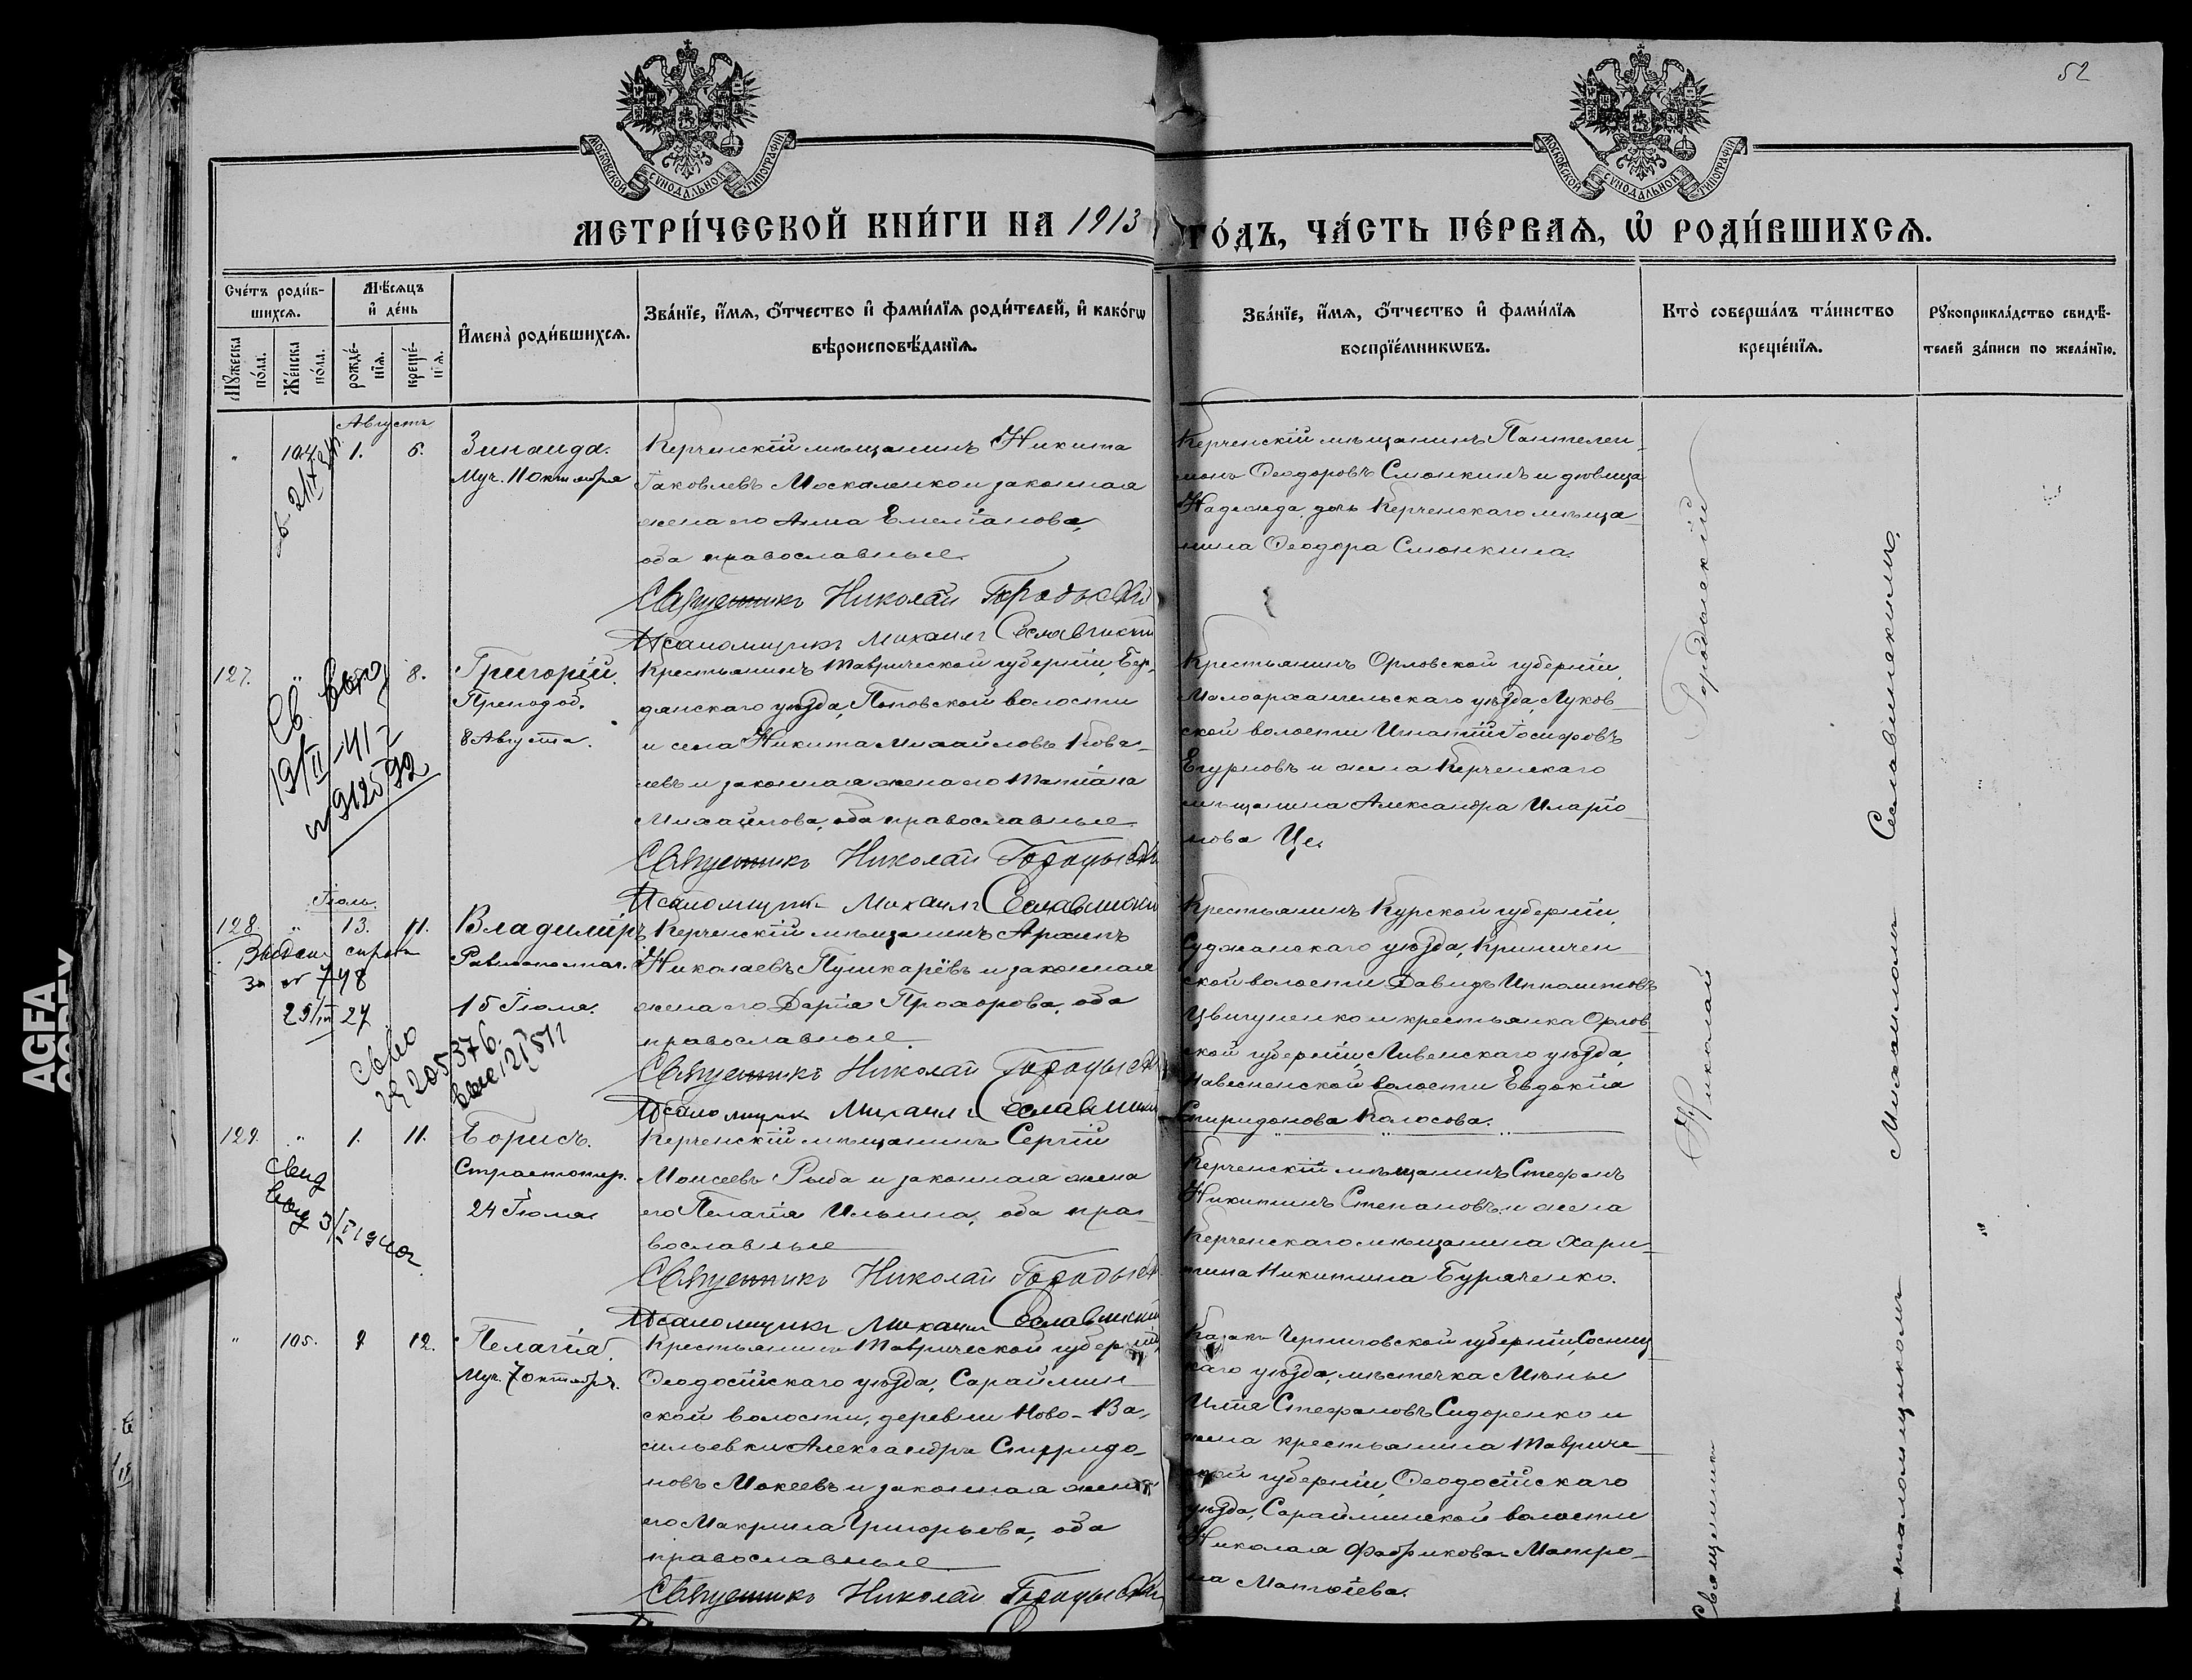 52
МОСКОВСКОЙ СѴНОДАЛЬНОЙ ТИПОГРАФІИ
МОСКОВСКОЙ СѴНОДАЛЬНОЙ ТИПОГРАФІИ
МЕТРИ́ЧЕСКОЙ КНИ́ГИ НА 1913 ГО́ДЪ, ЧА́СТЬ ПЕ́РВАѦ, Ѡ҆ РОДИ́ВШИХСѦ.
Сче́тъ роди́в-
шихсѧ.
Мꙋжеска по́ла.
Же́нска по́ла.
Мѣ́сѧцъ
и҆ де́нь
рожде́-
нїѧ.
креще́-
нїѧ.
И҆мена̀ роди́вшихсѧ.
Зва́нїе, и҆́мѧ, ѻ҆́тчество и҆ фами́лїѧ роди́телей, и҆ како́гѡ
вѣроисповѣ́данїѧ.
Зва́нїе, и҆́мѧ, ѻ҆́тчество и҆ фами́лїѧ
воспрїе́мникѡвъ.
Кто̀ соверша́лъ та́инство
креще́нїѧ.
Рꙋкоприкла́дство свидѣ́-
телей за́писи по жела́нїю.
Августъ
" 104. 1. 6.
Зинаида.
Муч. 11 октября
Керченскій мѣщанинъ Никита
Іаковлевъ Москаленко и законная
жена его Анна Емеліанова,
оба православные.
Священникъ Николай Городыскій
Псаломщикъ Михаилъ Сеславинскій
Керченскій мѣщанинъ Пантелеи-
монъ Ѳеодоровъ Смонкинъ и дѣвица
Надежда, дочь Керченскаго мѣща-
нина Ѳеодора Смонкина.
127. " 8.
Григорій.
Преподоб.
8 Августа.
Св. выд
19/II-41 г
№ 912592
Крестьянинъ Таврической губерніи, Бер-
дянскаго уѣзда, Поповской волости
и села Никита Михайловъ Кова-
левъ и законная жена его Татіана
Михайлова, оба православные.
Священникъ Николай Городыскій
Псаломщикъ Михаилъ Сеславинскій
Крестьянинъ Орловской губерніи,
Малоархангельскаго уѣзда, Луков-
ской волости Игнатій Іосифовъ
Егурновъ и жена Керченскаго
мѣщанина Александра Иларіо-
нова Це.
Іюль.
128. " 13. 11.
Владиміръ
Равноапостол.
15 Іюля.
за № 748
25/III 27
№ 205376.
Керченскій мѣщанинъ Архипъ
Николаевъ Пушкарёвъ и законная
жена его Дарія Прохорова, оба
православные.
Священникъ Николай Городыскій
Псаломщикъ Михаилъ Сеславинскій
Крестьянинъ Курской губерніи,
Суджанскаго уѣзда, Криничен-
ской волости Давидъ Ипполитовъ
Цвигуненко и крестьянка Орлов-
ской губерніи, Ливенскаго уѣзда,
Навесненской волости Евдокія
Спиридонова Колосова.
129. " 1. 11.
Борисъ.
Страстотер.
24 Іюля
Свид
выд 3/I 1940г.
Керченскій мѣщанинъ Сергій
Моисеевъ Рыба и законная жена
его Пелагія Ильина, оба пра-
вославные
Священникъ Николай Городыскій
Псаломщикъ Михаилъ Сеславинскій
Керченскій мѣщанинъ Стефанъ
Никитинъ Степановъ и жена
Керченскаго мѣщанина Хари-
тина Никитина Бураченко.
" 105. 12.
Пелагія.
Муч. 7 октября.
Крестьянинъ Таврической губерніи,
Ѳеодосійскаго уѣзда, Сараймин-
ской волости, деревни Ново-Ва-
сильевки Александръ Спиридо-
новъ Мокеевъ и законная жена
его Макрина Григорьева, оба
православные
Священникъ Николай Городыскій
Казакъ Черниговской губерніи, Сосниц-
каго уѣзда, мѣстечка Мены
Илія Стефановъ Сидоренко и
жена крестьянина Тавриче-
ской губерніи, Ѳеодосійскаго
уѣзда, Сарайминской волости
Николая Фабрикова Матро-
на Матѳіева.
Священникъ Николай Городыскій
псаломщикомъ Михаиломъ Сеславинскимъ.
AGFA